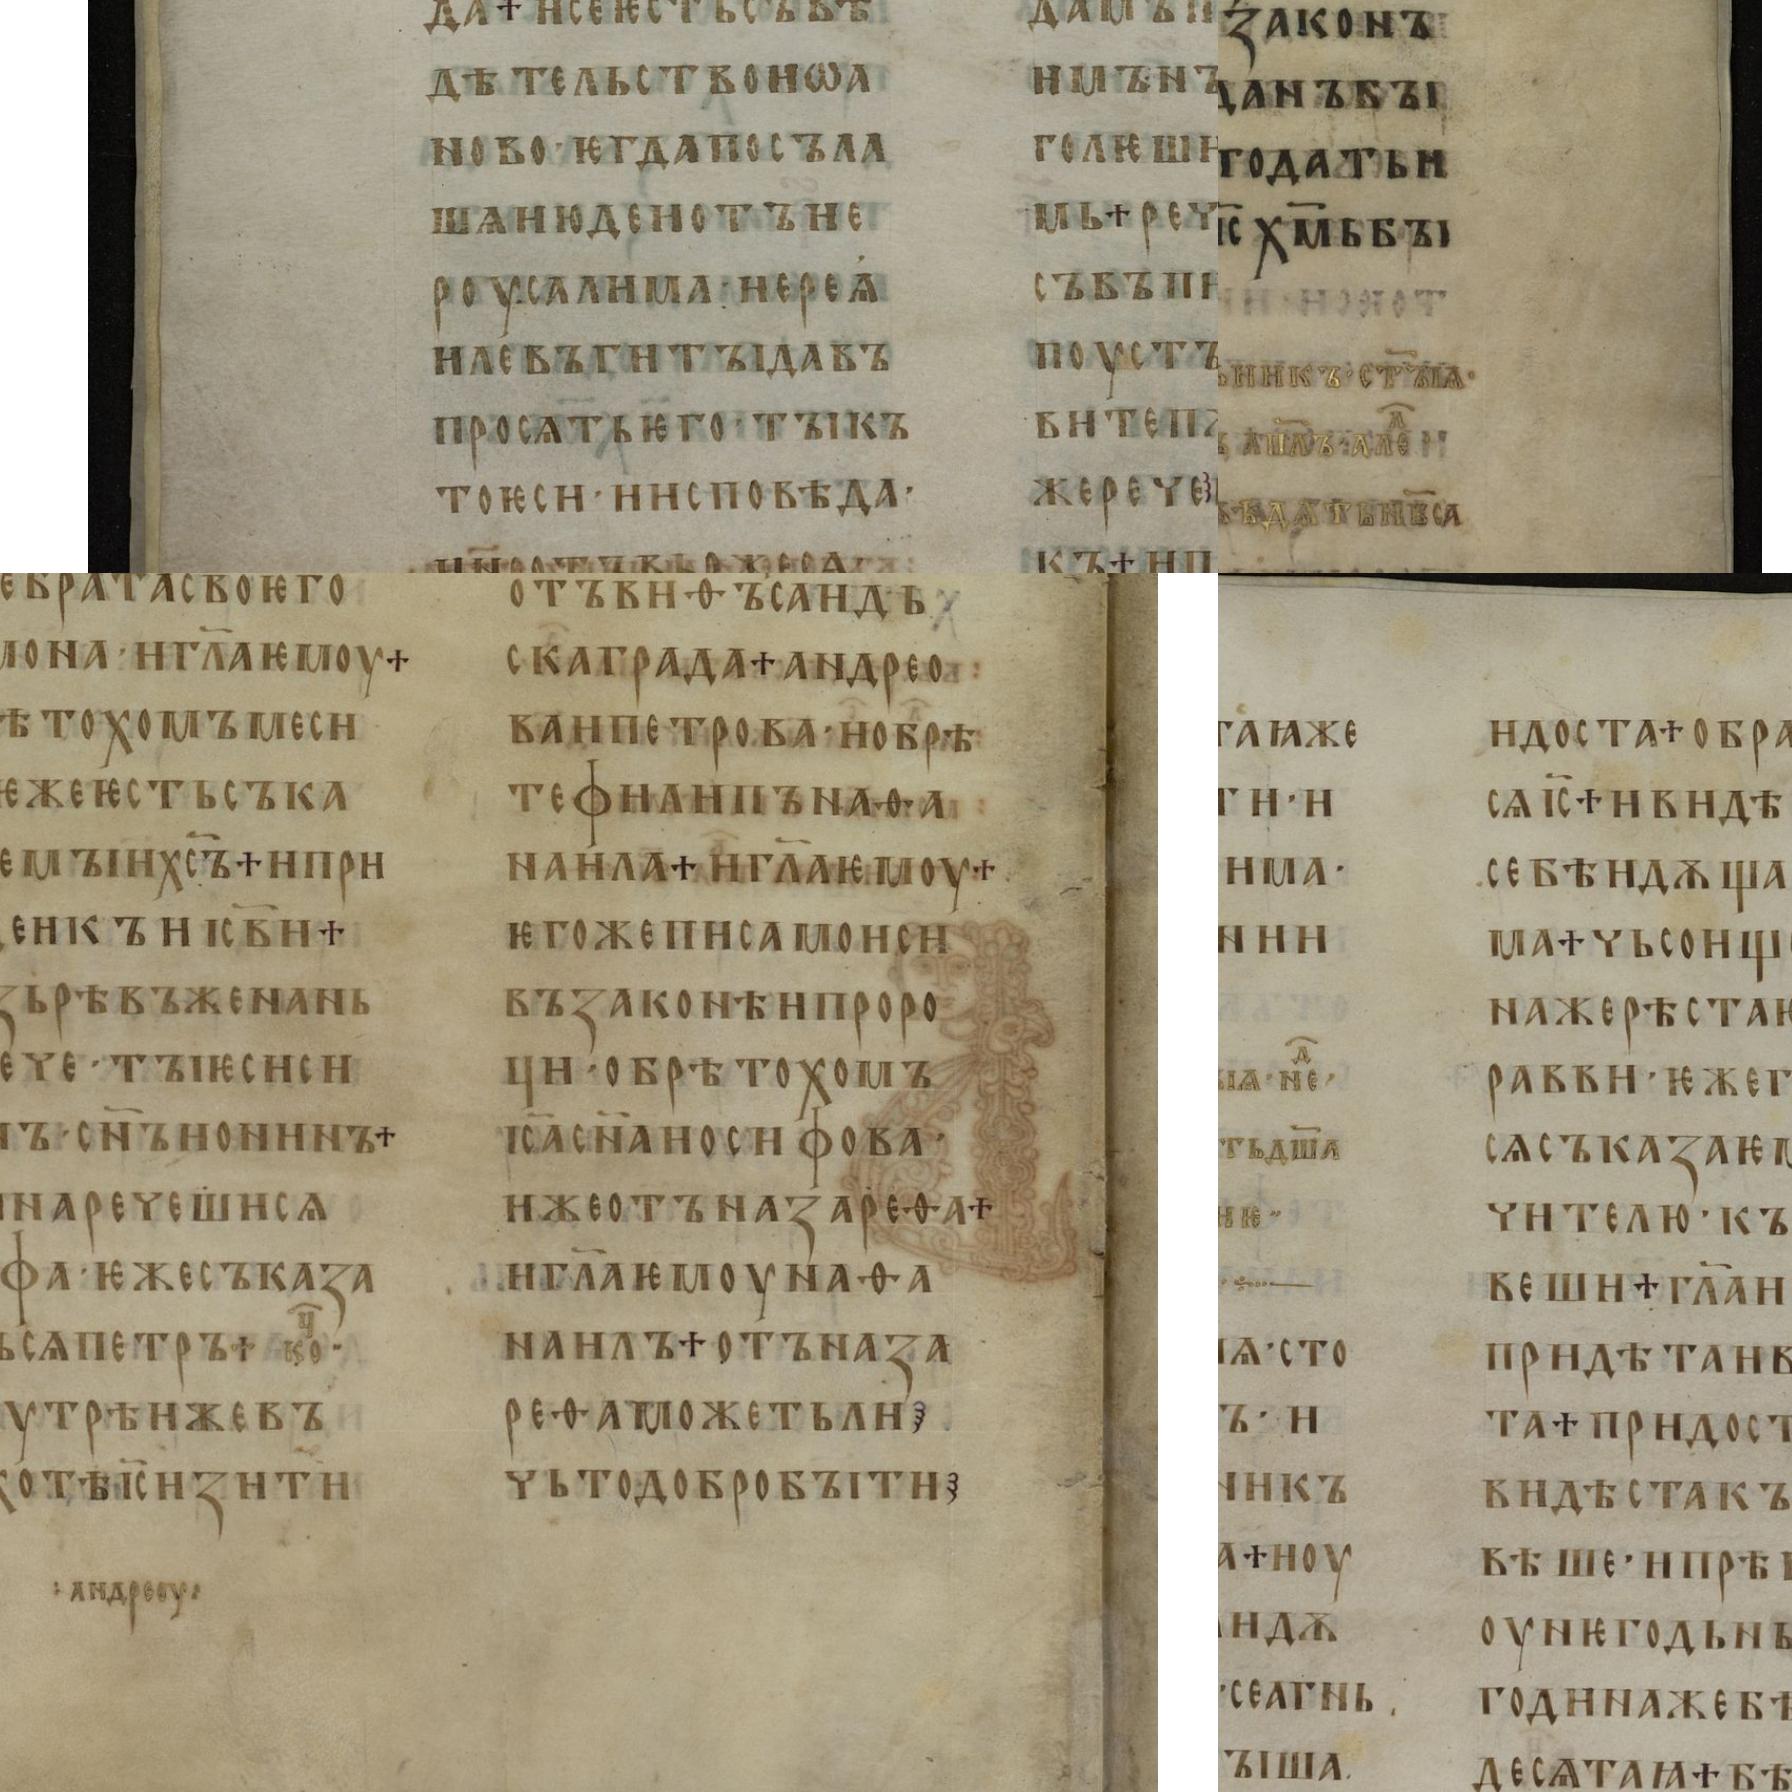 ДА+НСЕѤСТЬСЪВѢ
ДѢТЕЛЬСТВОИѠА
НОВО·ѤГДАПОСЪЛА
ШѦИЮДЕИОТЪИЕ
РОУСАЛИМА·ИЕРЕѦ
ИЛЕВЪГИТЪІДАВЪ
ПРОСѦТЬѤГО·ТЪІКЪ
ТОѤСИ·ИИСПОВѢДА·
ДАМЪП
НМЪНЪ
ГОЛѤШИ
МЬ+РЕЧ
СЪВЪПИ
ПОУСТЪ
ВИТЕПѪ
ЖЕРЕЧЕ
КЪ+ИП
ЗАКОНЪ
ДАНЪБЪІ
ГОДАТЬИ
І҃С Х҃МЬБЪІ
ЬНИКЪ·СТ҃ЪІѦ·
АП҃ЛЪ·АЛЕ
ЕБРАТАСВОѤГО
МОНА·ИГЛ҃АѤМОУ+
ѢТОХОМЪМЕСИ
ѤЖЕѤСТЬСЪКА
ЕМЪІИХС҃Ъ+ИПРИ
ДЕИКЪИІС҃ВИ+
ЗЬРѢВЪЖЕНАНЬ
ЕЧЕ·ТЪІѤСИСИ
НЪ·СН҃ЪИОНИНЪ+
ИНАРЕЧЕШИСѦ
ФА·ѤЖЕСЪКАЗА
ЬСѦПЕТРЪ+ КО
УТРѢИЖЕВЪ
ХОТѢІС҃ИЗИТИ
:АНДРЕОУ:
ОТЪВИѲЪСАИДЬ
СКАГРАДА+АНДРЕО
ВАИПЕТРОВА·ИОБРѢ
ТЕФИЛИПЪНАѲА
НАИЛА+ИГЛ҃АѤМОУ+
ѤГОЖЕПИСАМОИСИ
ВЪЗАКОНѢИПРОРО
ЦИ·ОБРѢТОХОМЪ
ІС҃АСН҃АИОСИФОВА·
ИЖЕОТЪНАЗАРЕѲА+
ИГЛ҃АѤМОУНАѲА
НАИЛЪ+ОТЪНАЗА
РЕѲАМОЖЕТЬЛИ
ЧЬТОДОБРОБЪІТИ
ГАꙖЖЕ
ТИ·И
НИМА·
НИИ
ѦІꙖ·НЕ
ТЬДШ҃А
ИѤ
Ѧ·СТО
Ъ·И
НИКЪ
А+ИОУ
ИДѪ
·СЕАГНЬ
ЪІША
ИДОСТА+ОБРА
СѦІС҃+ИВИДѢ
СЕБѢИДѪЩА
МА+ЧЬСОИЩЕ
НАЖЕРѢСТА
РАВВИ·ѤЖЕГ
СѦСЪКАЗАѤМ
ЧИТЕЛЮ·КЪ
ВЕШИ+ГЛ҃АИ
ПРИДѢТАИВ
ТА+ПРИДОСТ
ВИДѢСТАКЪ
ВѢШЕ·ИПРѢБ
ОУНѤГОДЬНЬ
ГОДИНАЖЕБѢ
ДЕСѦТАꙖ+БѢ